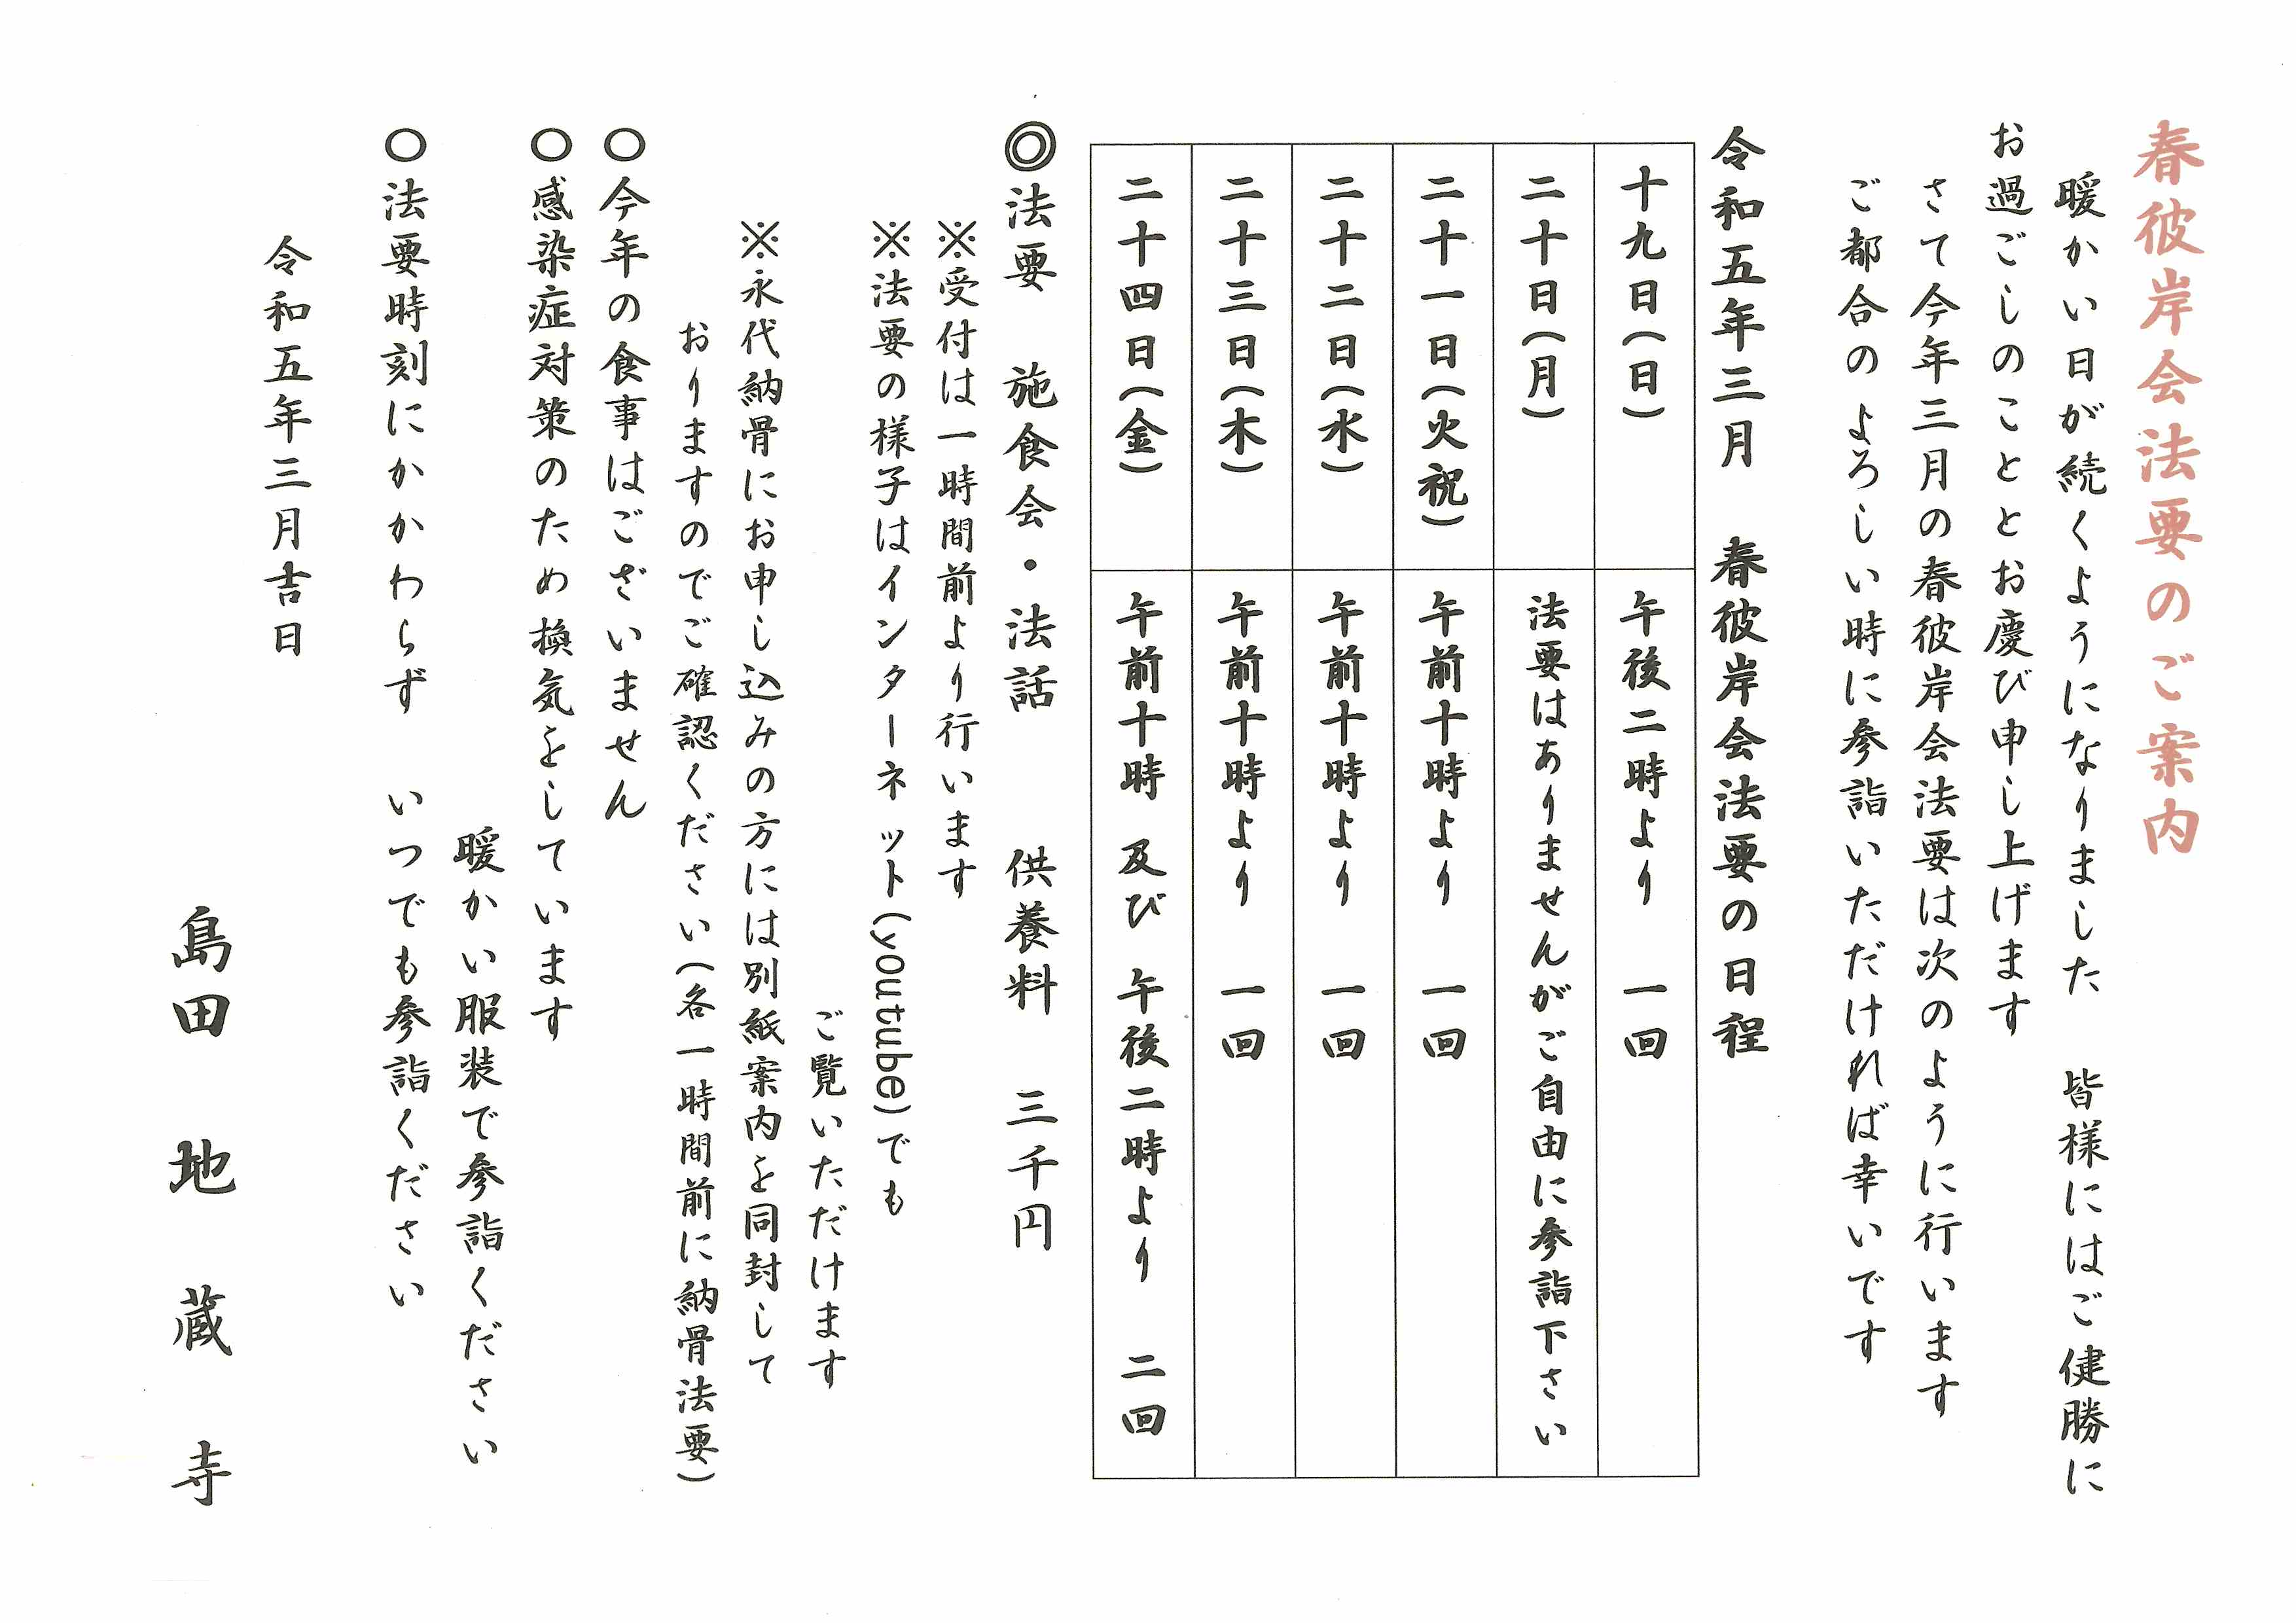 春彼岸会法要のご案内
暖かい日が続くようになりました　皆様にはご健勝に
お過ごしのこととお慶び申し上げます
さて今年三月の春彼岸会法要は次のように行います
ご都合のよろしい時に参詣いただければ幸いです
令和五年三月　春彼岸会法要の日程
十九日(日)　午後二時より　一回
二十日(月)　法要はありませんがご自由に参詣下さい
二十一日(火祝)　午前十時より　一回
二十二日(水)　午前十時より　一回
二十三日(木)　午前十時より　一回
二十四日(金)　午前十時 及び 午後二時より　二回
◎法要　施食会・法話　　供養料　三千円
※受付は一時間前より行います
※法要の様子はインターネット(youtube)でも
ご覧いただけます
※永代納骨にお申し込みの方には別紙案内を同封して
おりますのでご確認ください(各一時間前に納骨法要)
○今年の食事はございません
○感染症対策のため換気をしています
暖かい服装で参詣ください
○法要時刻にかかわらず　いつでも参詣ください
令和五年三月吉日
島田　地　蔵　寺